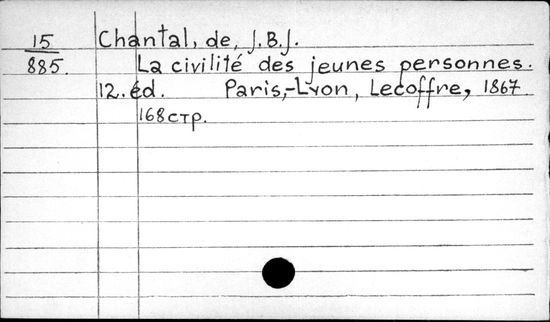 15 Chantal, de, J.B.J.
885. La civilité des jeunes personnes.
12. éd. Paris,-Lyon, Lecoffre, 1867
168 стр.